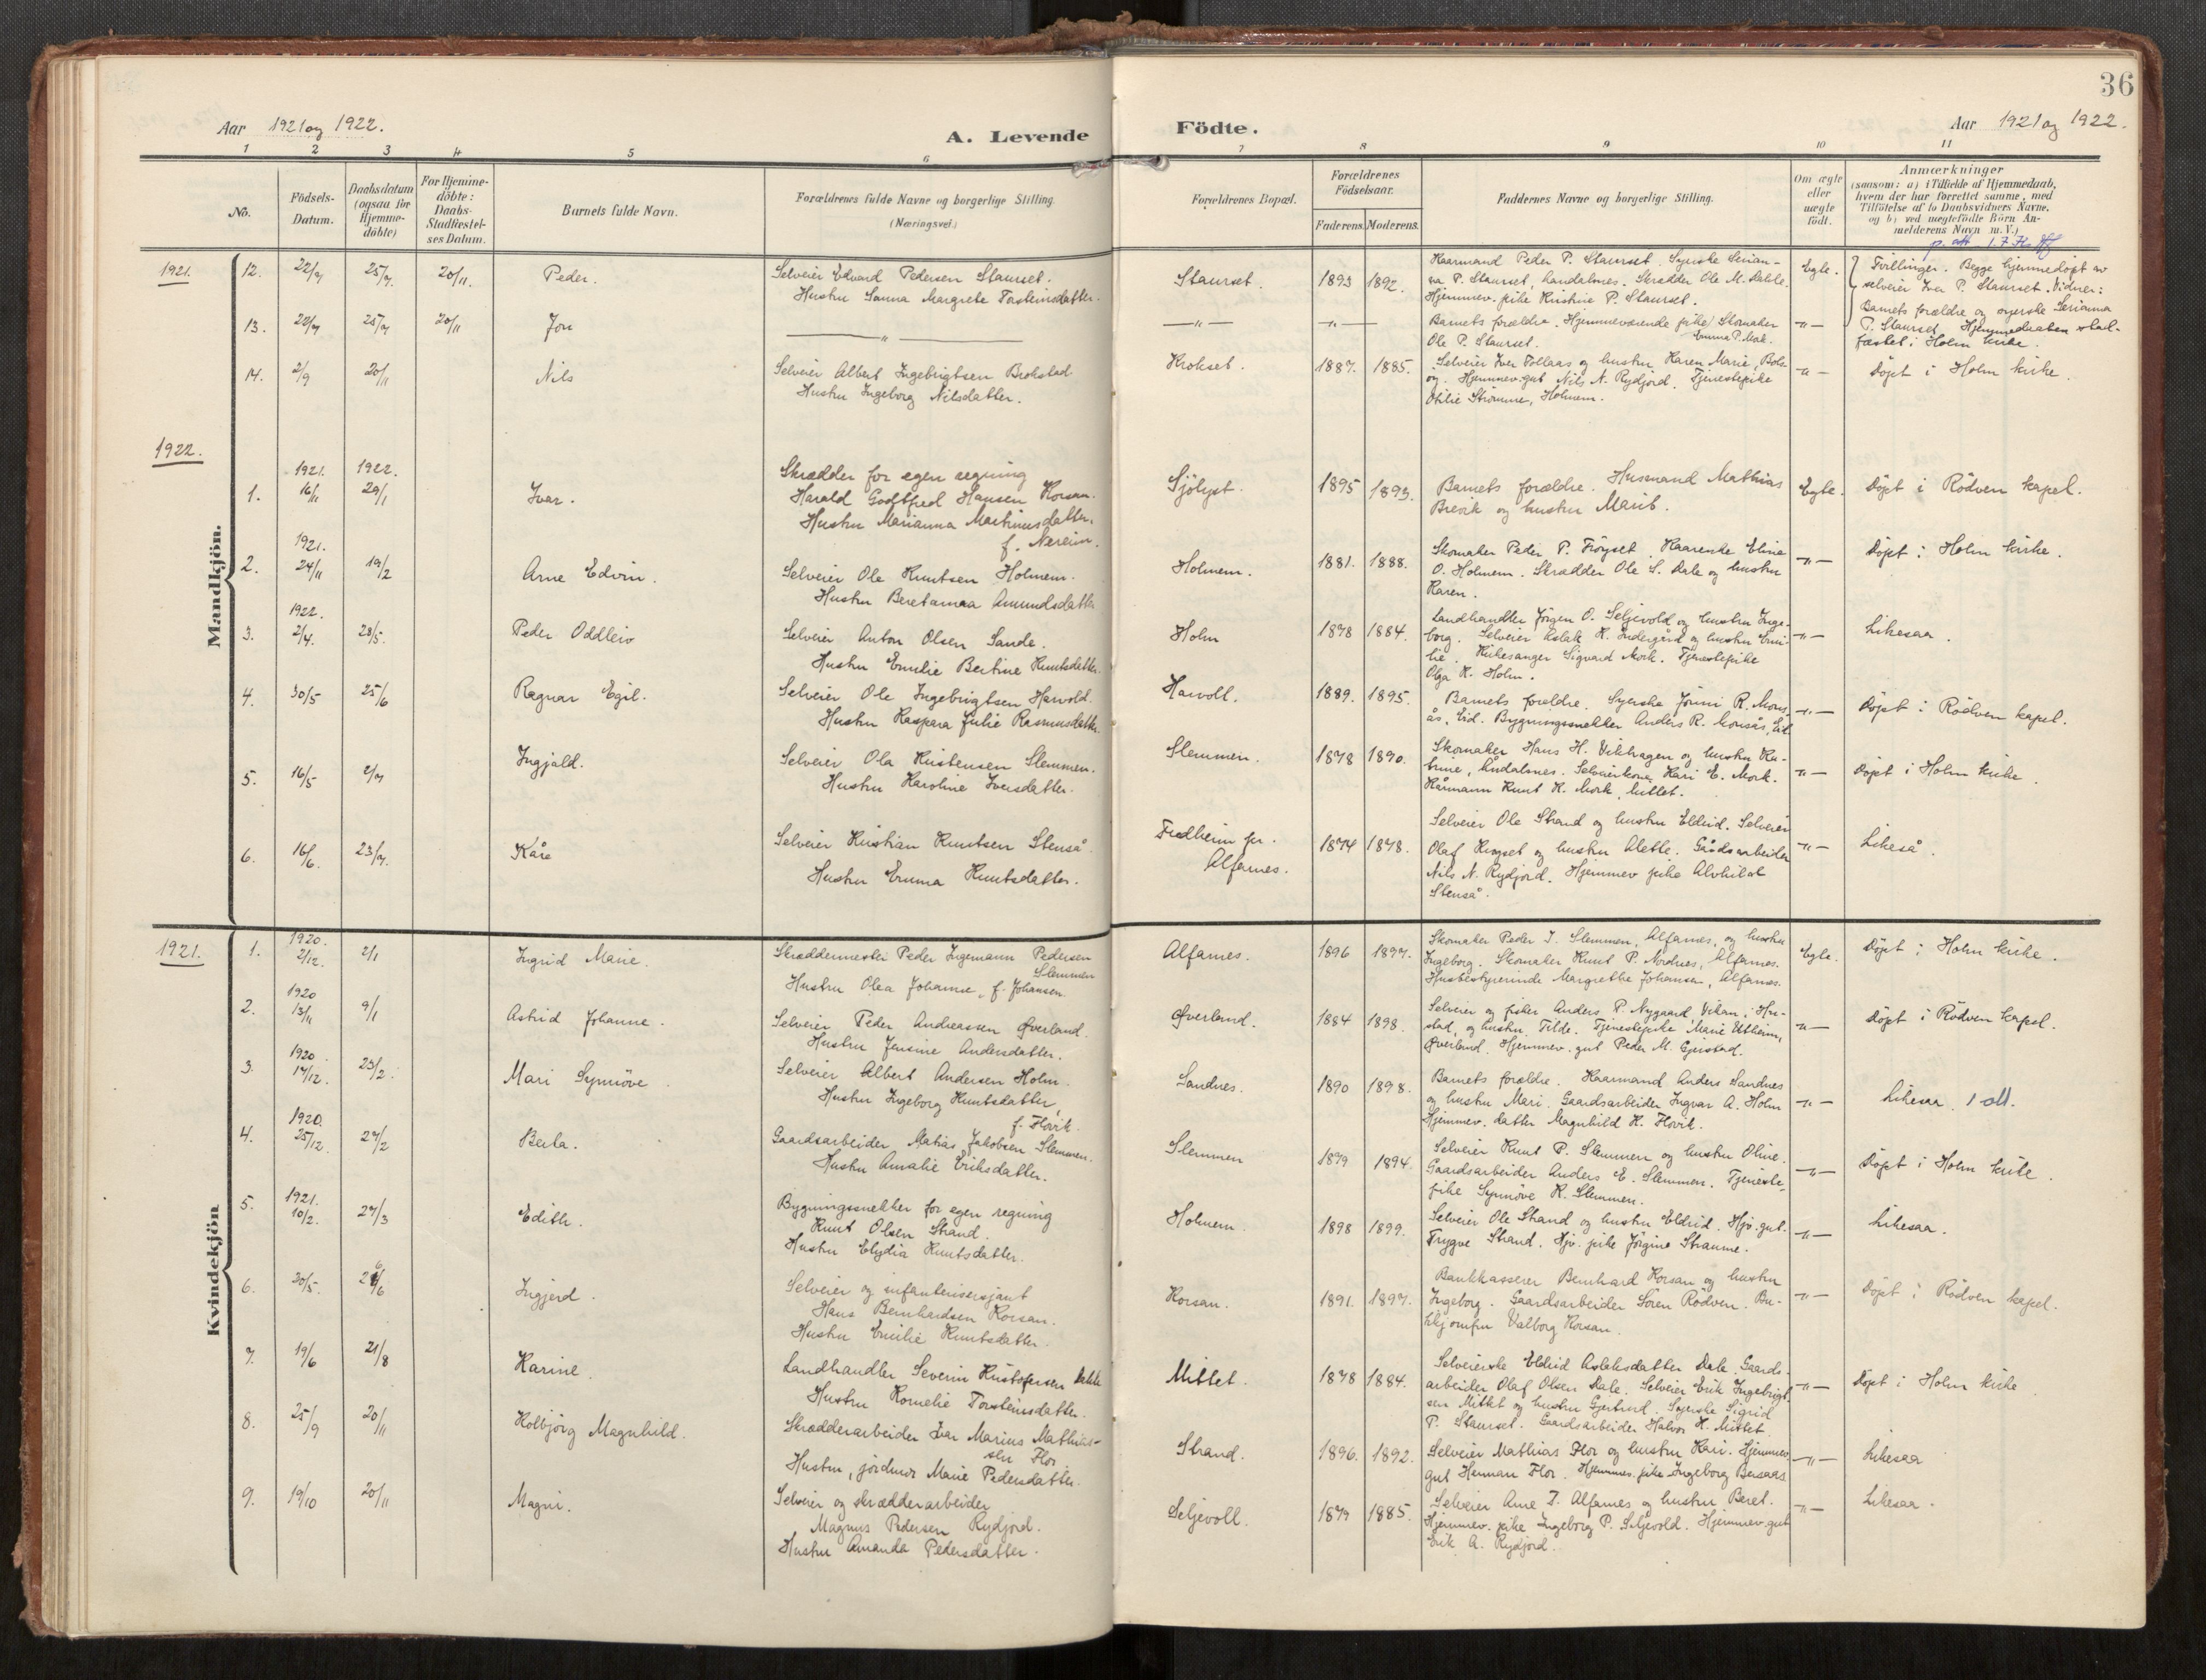 36
Aar 1921 og 1922.
A. Levende Födte.
Aar 1921 og 1922.
1 2 3 4 5 6 7 8 9 10 11
No.
Födsels-
Datum.
Daabsdatum
(ogsaa for
Hjemme-
döbte)
For Hjemme-
döbte:
Daabs-
Stadfæstel-
ses Datum.
Barnets fulde Navn.
Forældrenes fulde Navne og borgerlige Stilling.
(Næringsvei.)
Forældrenes Bopæl.
Forældrenes
Födselsaar.
Faderens. Moderens.
Faddernes Navne og borgerlige Stilling.
Om ægte
eller
uægte
født.
Anmærkninger
(saasom: a) i Tilfælde af Hjemmedaab,
hvem der har forrettet samme, med
Tilföielse af to Daabsvidners Navne.
og b) ved uegtefödte Börn An-
melderens Navn m. V.)
Mandkjön.
1921.
12. 22/7 25/7. 20/11. Peder.
Selveier Edvard Pedersen Staurset.
Hustru Sanna Margrete Torsteinsdatter.
Staurset. 1893 1892.
Haarmand Peder P. Staurset. Syerske Serian-
na P. Staurset, Aandalsnes. Skrædder Ole M. Dahle.
Hjemmev. pike Kristine P. Staurset.
Egte.
Tvillinger. Begge hjemmedöpt av
selveier Iver P. Staurset. Vidner:
Barnets forældre og syerske Serianna
P. Staurset. Hjemmedaaben stad-
fæstet i Holm kirke.
13. 22/7 25/7 20/11 Jon
— " —
— " — — " —
Barnets forældre. Hjemmeværende pike Emma P. Mork. Skomaker
Ole P. Staurset.
— " —
14. 2/9 20/11 Nils
Selveier Albert Ingebrigtsen Brokstad.
Hustru Ingeborg Nilsdatter.
Krokset. 1887. 1885.
Selveier Iver Vollaas og hustru Karen Marie, Bols-
øy. Hjemmev. gut Nils N. Rydjord. Tjenestepike
Otilie Strømme, Holmem.
— " —
Döpt i Holm kirke.
1922.
1. 1921. 16/11 1922. 29/1 Ivar.
Skrædder for egen regning
Harald Godtfred Hansen Korsan.
Hustru Marianna Martinusdatter,
f. Nereim.
Sjölyst. 1895 1893.
Barnets forældre. Husmand Mathias
Brevik og hustru Marit.
Egte.
Döpt i Rödven kapel.
2. 1921. 24/11 19/2 Arne Edvin.
Selveier Ole Knutsen Holmem.
Hustru Beretanna Amundsdatter
Holmem. 1881. 1888.
Skomaker Peder P. Fröyset. Haarerske Eline
O. Holmem. Skrædder Ole S. Dale og hustru
Karen.
— " —
Döpt i Holm kirke.
3. 1922. 2/4. 28/5. Peder Oddleiv
Selveier Anton Olsen Sande.
Hustru Emilie Bertine Knutsdatter.
Holm 1878 1884.
Landhandler Jörgen O. Seljevold og hustru Inge-
borg. Selveier Aslak K. Indergård og hustru Emi-
lie. Kirkesanger Sigvard Mork. Tjenestepike
Olga K. Holm.
— " —
Likesaa.
4. 30/5 25/6 Ragnar Egil.
Selveier Ole Ingebrigtsen Harvold.
Hustru Kaspara Julie Rasmusdatter.
Harvoll. 1889. 1895.
Barnets foreldre. Syerske Jönni R. Mons-
ås, Eid. Bygningssnekker Anders R. Monsås, Eid
— " —
Döpt i Rödven kapel.
5. 16/5 2/7 Ingjald.
Selveier Ola Kristensen Slemmen.
Hustru Karoline Iversdatter.
Slemmen. 1878 1890.
Skomaker Hans H. Vikhagen og hustru Ka-
trine, Åndalsnes. Selveierkone Kari E. Mork.
Hårmann Knut K. Mork, Mittet.
— " —
Döpt i Holm kirke.
6. 16/6. 23/7. Kåre
Selveier Kristian Knutsen Stenså.
Hustru Emma Knutsdatter.
Fredheim pr.
Alfarnes. 1874 1878.
Selveier Ole Strand og hustru Eldrid. Selveier
Olaf Krogset og hustru Alette. Gårdsarbeider
Nils N. Rydjord. Hjemmev pike Alvhild
Stenså.
— " —
Likeså.
Kvindekjön
1921.
1. 1920. 2/12. 2/1 Ingrid Marie.
Skræddermester Peder Ingemann Pedersen
Slemmen
Hustru Olea Johanne, f. Johansen.
Alfarnes. 1896 1897.
Skomaker Peder J. Slemmen, Alfarnes, og hustru
Ingeborg. Skomaker Knut P. Nordnes, Alfarnes.
Husbestyrerinde Margrethe Johansen, Alfarnes.
Egte.
Döpt i Holm kirke.
2. 1920 13/11 9/1 Astrid Johanne.
Selveier Peder Andreassen Øverland.
Hustru Jensine Andersdatter.
Øverland. 1884 1898.
Selveier og fisker Anders P. Nygaard Vikan i Hu-
stad, og hustru Tilde. Tjenestepike Marie Utheim,
Øverland. Hjemmev. gut Peder M. Gjerstad.
— " —
Döpt i Rödven kapel.
3. 1920. 17/12. 23/2. Mari Synnöve.
Selveier Albert Andersen Holm.
Hustru Ingeborg Knutsdatter,
f. Flovik.
Sandnes. 1890 1898.
Barnets forældre. Haarmand Anders Sandnes
og hustru Mari. Gaardsarbeider Ingvar A. Holm
Hjemmev. datter Magnhild K. Flovik.
— " —
Likesaa.
4. 1920. 25/12. 27/2 Berla.
Gaardsarbeider Matias Jakobsen Slemmen.
Hustru Amalie Eriksdatter.
Slemmen 1879 1894.
Selveier Knut P. Slemmen og hustru Oline.
Gaardsarbeider Anders E. Slemmen. Tjeneste-
pike Synnöve K. Slemmen.
— " —
Döpt i Holm kirke.
5. 1921. 10/2. 27/3 Edith.
Bygningssnekker for egen regning
Knut Olsen Strand.
Hustru Elydia Knutsdatter.
Holmem. 1898 1899.
Selveier Ole Strand og hustru Eldrid. Hjv. gut
Trygve Strand. Hjv. pike Jörgine Straume.
— " —
Likesaa.
6. 20/5. 26/6 Ingjerd.
Selveier og infanterisersjant
Hans Bernhardsen Korsan.
Hustru Emilie Knutsdatter.
Korsan. 1891. 1897.
Bankkasserer Bernhard Korsan og hustru
Ingeborg. Gaardsarbeider Sören Rödven. Bu-
tikjomfru Valborg Korsan.
— " —
Döpt i Rödven kapel.
7. 19/6 21/8 Karine.
Landhandler Severin Kristofersen Dahle
Hustru Kornelie Torsteinsdatter.
Mittet. 1878 1884.
Selveierske Eldrid Aslaksdatter Dale. Gaards-
arbeider Olaf Olsen Dale. Selveier Erik Ingebrigt-
sen Mittet og hustru Gjertrud. Syerske Sigrid
P. Staurset. Gaardsarbeider Halvor K. Mittet.
— " —
Döpt i Holm kirke
8. 25/9 20/11 Kolbjörg Magnhild.
Skrædderarbeider Ivar Marius Mathias-
sen Flor.
Hustru, jordmor Marie Pedersdatter.
Strand. 1896. 1892.
Selveier Mathias Flor og hustru Kari. Hjemmev.
gut Herman Flor. Hjemmev. pike Ingeborg Bersaas
— " —
Likesaa
9. 19/10 20/11 Magni.
Selveier og skrædderarbeider
Magnus Pedersen Rydjord.
Hustru Amanda Pedersdatter.
Seljevoll. 1879 1885.
Selveier Arne J. Alfarnes og hustru Beret.
Hjemmev. pike Ingeborg P. Seljevold. Hjemmev. gut
Erik A. Rydjord.
— " —
Likesaa.